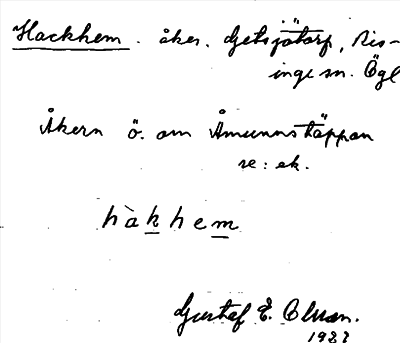 Hackhem. åker. Getsjötorp, Ris-
inge sn. Ögl
Åkern ö. om Åmunnstäppan
se: ek.
hàkhem
Gustaf E.